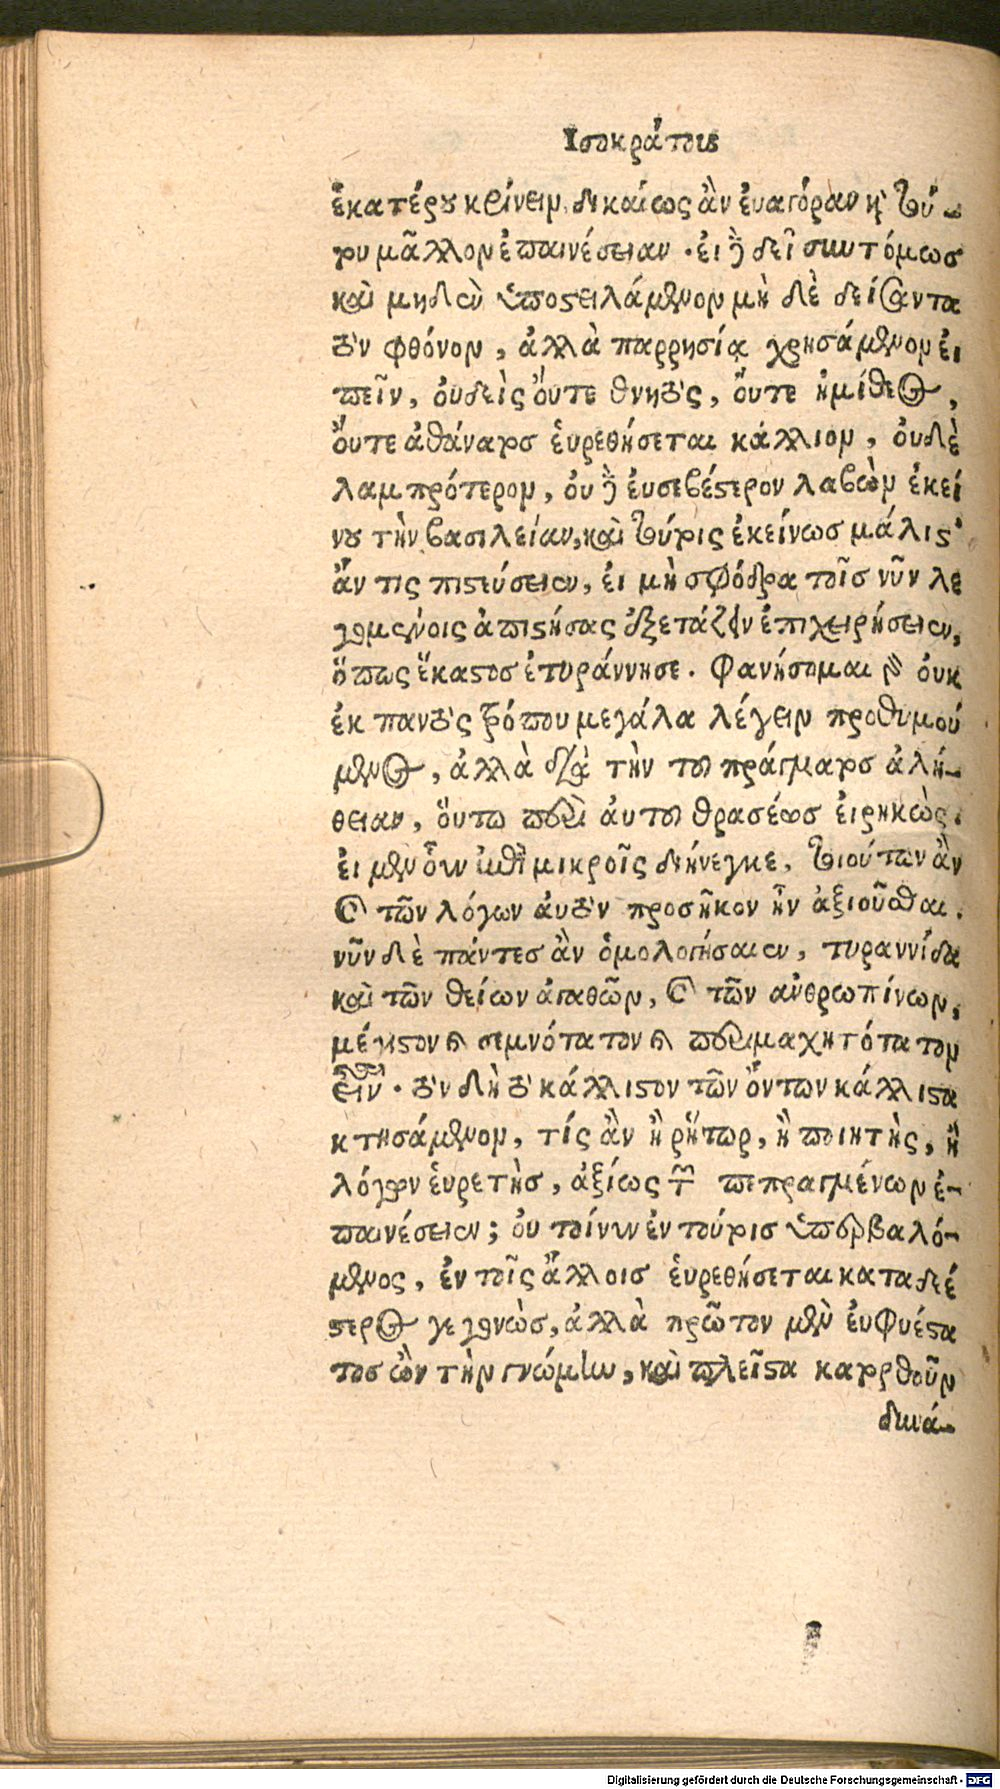 Ἰσοκράτους
ἑκατέρου κρίνειν, δικαίως ἂν ἐυαγόραν καὶ τού-
του μᾶλλον ἐπαινέσειαν. ἐι γὰρ δεῖ συντόμως
καὶ μηδὲν ὑποστειλάμενον μὴ δὲ δείσαντα
τὸν φθόνον, ἀλλὰ παρρησίᾳ χρησάμενον ἐι
πεῖν, ὀυδεὶς ὄυτε θνητὸς, ὄυτε ἡμίθεος,
ὄυτε ἀθάνατος ἑυρεθήσεται κάλλιον, ὀυδὲ
λαμπρότερον, ὀυ γὰρ ἐυσεβέστερον λαβὼν ἐκεί
νου τὴν βασιλείαν, καὶ τούτοις ἐκείνως μάλιστ'
ἄν τις πιστεύσειεν, ἐι μὴ σφόδρα τοῖς νῦν λε
γομένοις ἀπιστήσας ἐξετάζειν ἐπιχειρήσειεν,
ὅπως ἕκαστος ἐτυράννησε. Φανήσομαι γὰρ ὀυκ
ἐκ παντὸς τρόπου μεγάλα λέγειν προθυμού
μενος, ἀλλὰ διὰ τὴν του πράγματος ἀλή-
θειαν, ὅυτω περὶ ἀυτου θρασέως ἐιρηκὼς.
ἐι μὲν οὖν ἐπὶ μικροῖς διήνεγκε, τοιούτων ἂν
καὶ τῶν λόγων ἀυτὸν προσῆκον ἦν ἀξιοῦσθαι.
νῦν δὲ πάντες ἂν ὁμολογήσαιεν, τυραννίδα
καὶ τῶν θείων ἀγαθῶν, καὶ τῶν ἀνθρωπίνων,
μέγιστον καὶ σεμνότατον καὶ περιμαχητότατον
εἶναι. τὸν δὴ τὸ κάλλιστον τῶν ὄντων κάλλιστα
κτησάμενον, τίς ἂν ἢ ῥήτωρ, ἢ ποιητὴς, ἢ
λόγων ἑυρετὴς, ἀξίως τῶν πεπραγμένων ἐ-
παινέσειεν; ὀυ τοίνυν ἐν τούτοις ὑπερβαλό-
μενος, ἐν τοῖς ἄλλοις ἑυρεθήσεται καταδεέ
στερος γεγονὼς, ἀλλὰ πρῶτον μὲν ἐυφυέστα
τος ὢν τὴν γνώμην, καὶ πλεῖστα κατορθοῦν
δυνά-
Digitalisierung gefördert durch die Deutsche Forschungsgemeinschaft - DFG